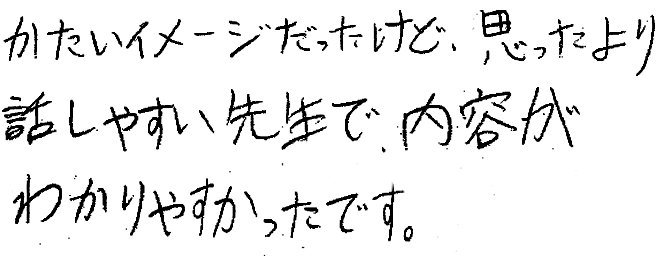 かたいイメージだったけど、思ったより
話しやすい先生で、内容が
わかりやすかったです。